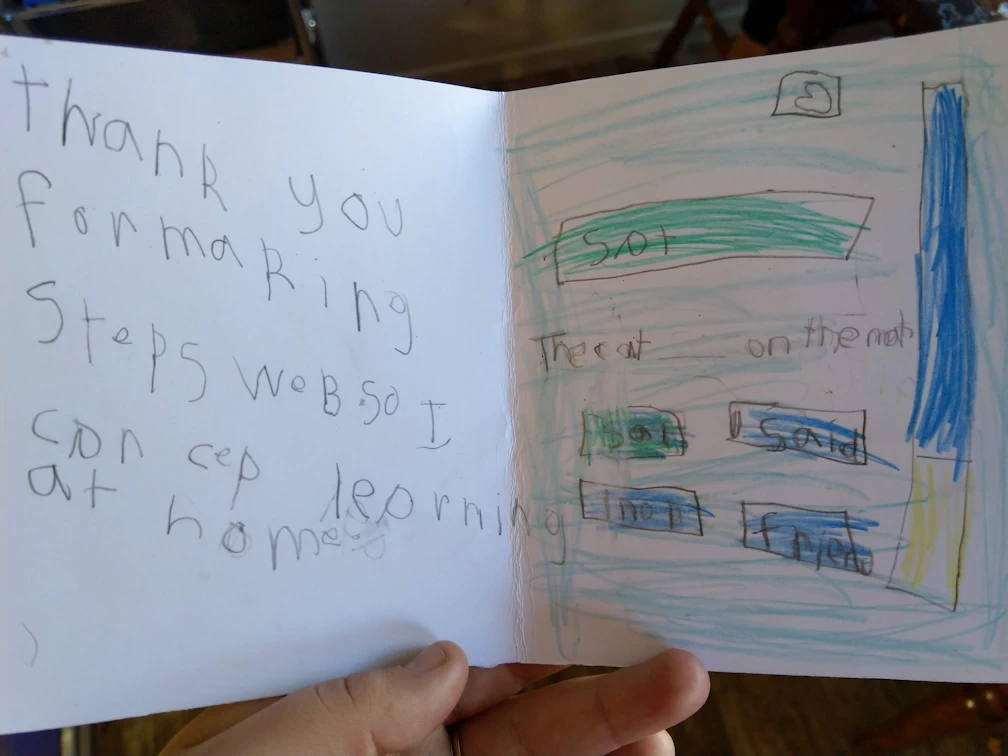 thank you
for making
Steps web so I
can cep learning
at home
Sat
The cat ___ on the mat
Sat
Said
friend